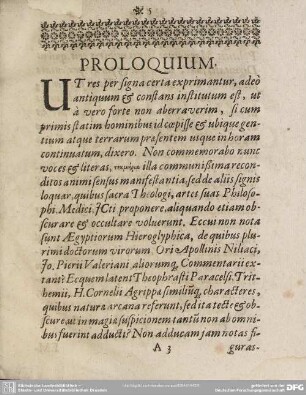 5
PROLOQUIUM.
UT res per signa certa exprimantur, adeò
antiquum & constans institutum est, ut
à vero forte non aberraverim, si cum
primis statim hominibus id cœpisse & ubique gen-
tium atque terrarum præsentem usque in horam
continuatum, dixero. Non commemorabo nunc
voces & literas, illa communissima recon-
ditos animi sensus manifestantia, sed de aliis signis
loquar, quibus sacra Theologi, artes suas Philoso-
phi, Medici, JCti proponere, aliquando etiam ob-
scurare & occultare voluerunt. Eccui non nota
sunt Ægyptiorum Hieroglyphica, de quibus plu-
rimi doctorum virorum Ori Apollinis Niliaci,
Jo. Pierii Valeriani, aliorumq; Commentarii ex-
tant? Ecquem latent Theophrasti Paracelsi, Trit-
hemii, H. Cornelii Agrippæ similiumq; characteres,
quibus naturæ arcana referunt, sed ita tectè & ob-
scurè ut in magiæ suspicionem tantùm non ab omni-
bus fuerint adducti? Non adducam jam notas fi-
A 3 guras-